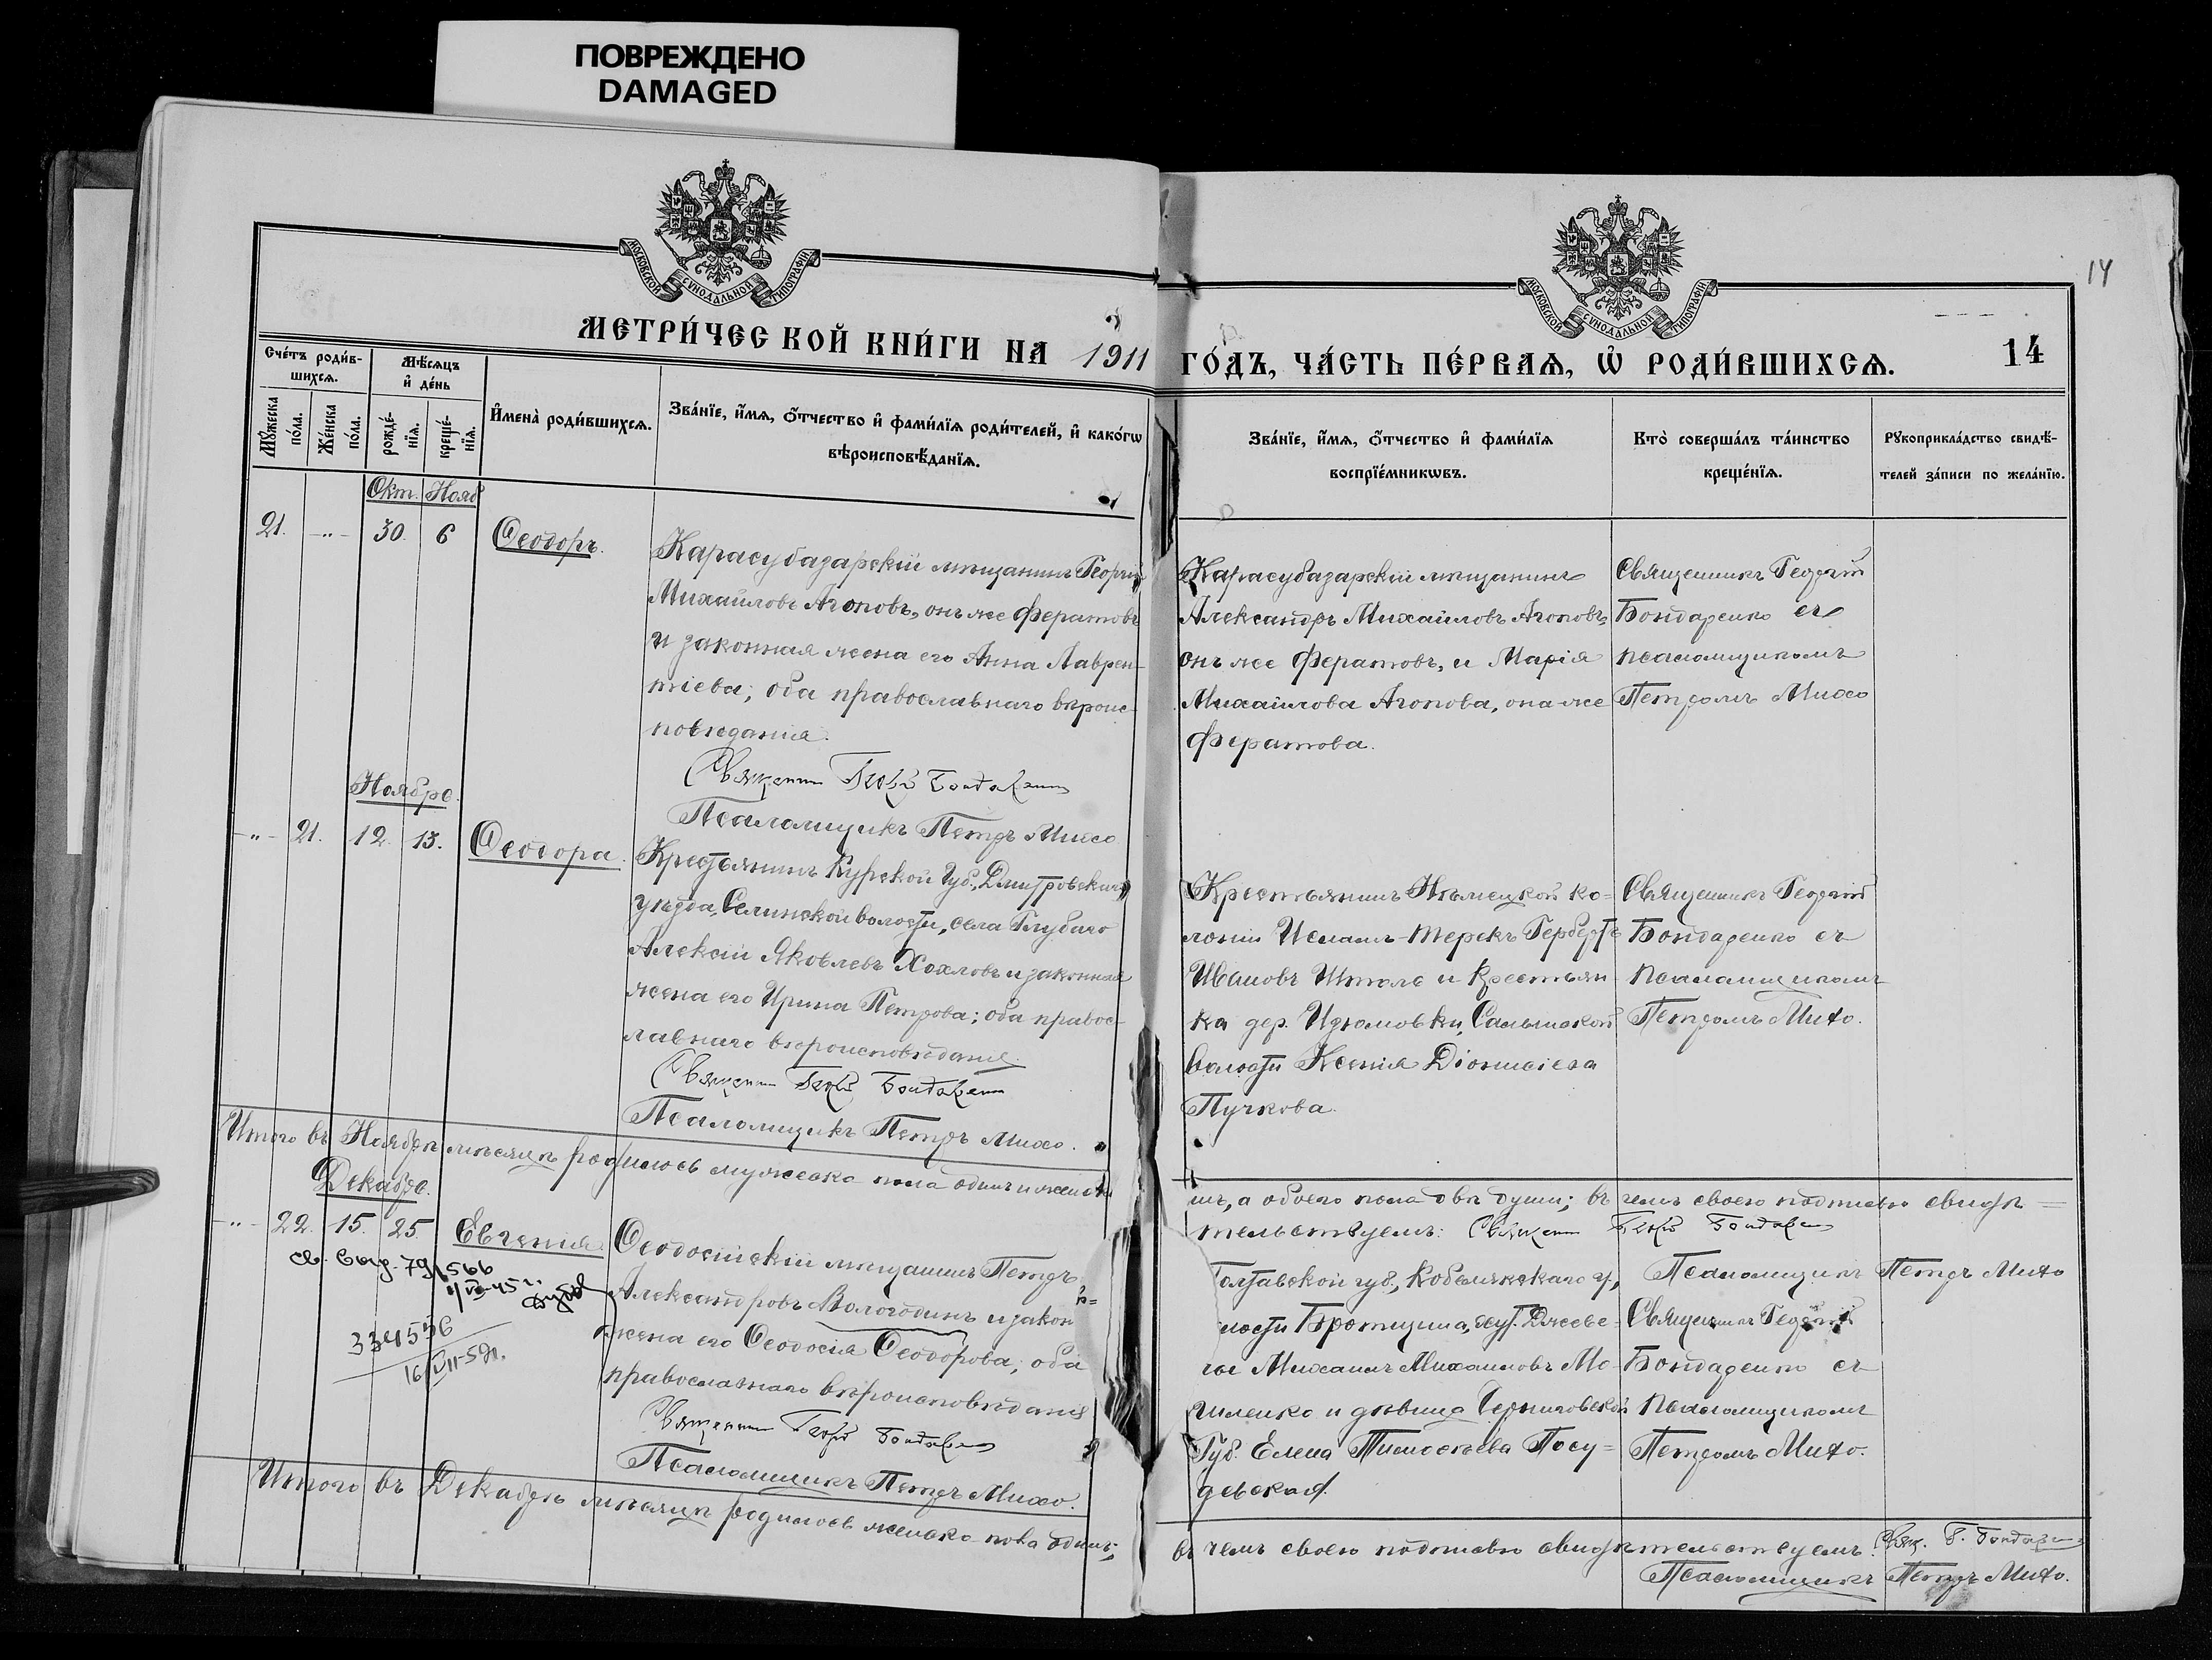 ПОВРЕЖДЕНО
DAMAGED
МОСКОВСКОЙ СУНОДАЛЬНОЙ ТИПОГРАФІИ
МОСКОВСКОЙ СУНОДАЛЬНОЙ ТИПОГРАФІИ
14
МЕТРИ́ЧЕСКОЙ КНИ́ГИ НА 1911
ГО́ДЪ, ЧА́СТЬ ПЕ́РВАѦ, Ѡ РОДИ́ВШИХСѦ.
14
Сче́тъ роди́в-
шихсѧ.
Мѣ́сѧцъ
и҆ де́нь
Мꙋ́жеска
по́ла.
Же́нска
по́ла.
рожде́-
нїѧ.
креще́-
нїѧ.
И҆мена̀ роди́вшихсѧ.
Зва́нїе, и҆́мѧ, ѻ҆́тчество и҆ фами́лїѧ роди́телей, и҆ како́гѡ
вѣроисповѣ́данїѧ.
Зва́нїе, и҆́мѧ, ѻ҆́тчество и҆ фами́лїѧ
воспрїе́мникѡвъ.
Кто̀ соверша́лъ та́инство
креще́нїѧ.
Рꙋкоприкла́дство свидѣ́-
телей за́писи по жела́нїю.
Окт. Нояб
21. -"- 30. 6 Ѳеодоръ.
Карасубазарскій мѣщанинъ Георгій
Михайловъ Агоповъ, онъ же Фератовъ
и законная жена его Анна Лаврен-
тіева; оба православнаго вѣроис-
повѣданія.
Священникъ Георгій Бондаренко
Псаломщикъ Петръ Михо
Карасубазарскій мѣщанинъ
Александръ Михайловъ Агоповъ,
онъ же Фератовъ, и Марія
Михайлова Агопова, она же
Фератова.
Священникъ Георгій
Бондаренко съ
псаломщикомъ
Петромъ Михо
Ноябрь.
-"- 21. 12. 13. Ѳеодора.
Крестьянинъ Курской Губ., Дмитровскаго
уѣзда, Селинской волости, села Глубаго
Алексій Яковлевъ Хохловъ и законная
жена его Ирина Петрова; оба правос-
лавнаго вѣроисповѣданія.
Священникъ Георгій Бондаренко
Псаломщикъ Петръ Михо.
Крестьянинъ Нѣмецкой ко-
лоніи Исмаилъ-Терекъ Гербертъ
Ивановъ Штоль и крестьян
ка дер. Изюмовки, Салынской
волости Ксенія Діонисіева
Пучкова.
Священникъ Георгій
Бондаренко съ
псаломщикомъ
Петромъ Михо.
Итого въ Ноябрѣ мѣсяцѣ родилось мужеска пола одинъ и женска
инъ, а обоего пола двѣ души; въ чемъ своею подписью свидѣ-
тельствуемъ: Священникъ Георгій Бондаренко
Псаломщикъ Петръ Михо
Декабрь.
-"- 22. 15. 25. Евгенія
Св. выд. 791566
334556
Ѳеодосійскій мѣщанинъ Петръ
Александровъ Вологодинъ и закон
жена его Ѳеодосія Ѳеодорова; оба
православнаго вѣроисповѣданія
Священникъ Георгій Бондаренко
Псаломщикъ Петръ Михо.
Полтавской губ., Кобелякскаго у.,
лости Бротщина, хут.
Михаилъ Михаиловъ Мо-
гиленко и дѣвица Черниговской
Губ. Елена Тимоѳеева Посу-
девская.
Священникъ Георгій
Бондаренко съ
псаломщикомъ
Петромъ Михо.
Итого въ Декабрѣ мѣсяцѣ родилось женска пола одинъ;
въ чемъ своею подписью свидѣтельствуемъ: Свящ. Г. Бондаренко
Псаломщикъ Петръ Михо.